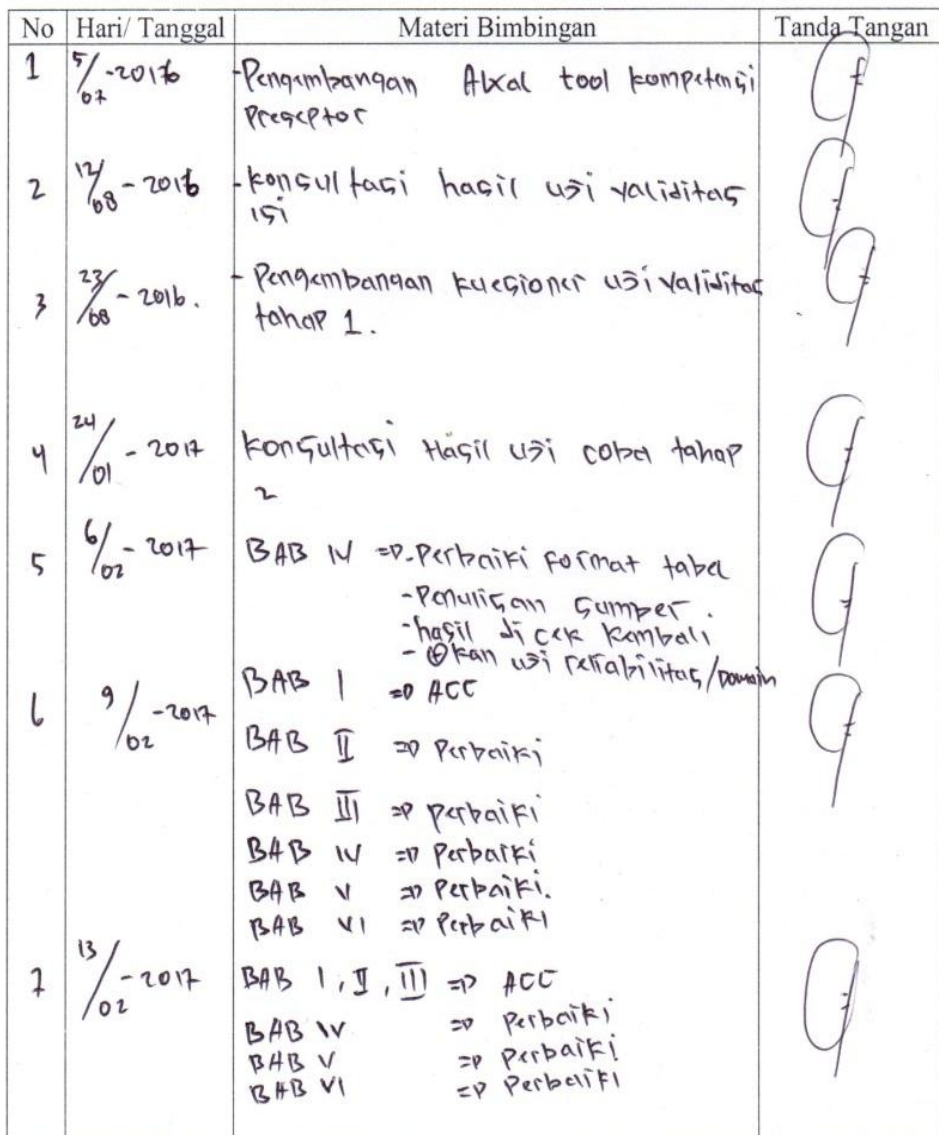 No Hari/ Tanggal Materi Bimbingan Tanda Tangan
1 5/07 -2016 -Pengembangan tool kompetensi
Preseptor
2 12/08 - 2016 -konsultasi hasil uji validitas
isi
3 23/08 - 2016. - Pengembangan kuesioner uji validitas
tahap 1.
4 24/01 - 2017 konsultasi Hasil uji coba tahap
2
5 6/02 - 2017 BAB IV => -Perbaiki Format tabel
-Penulisan Sumber.
-hasil di cek kembali
- uji reliabilitas/Domain
6 9/02 -2017 BAB I => ACC
BAB II => Perbaiki
BAB III => perbaiki
BAB IV => Perbaiki
BAB V => Perbaiki.
BAB VI => Perbaiki
7 13/02 -2017 BAB I, II, III => ACC
BAB IV => Perbaiki
BAB V => Perbaiki
BAB VI => Perbaiki